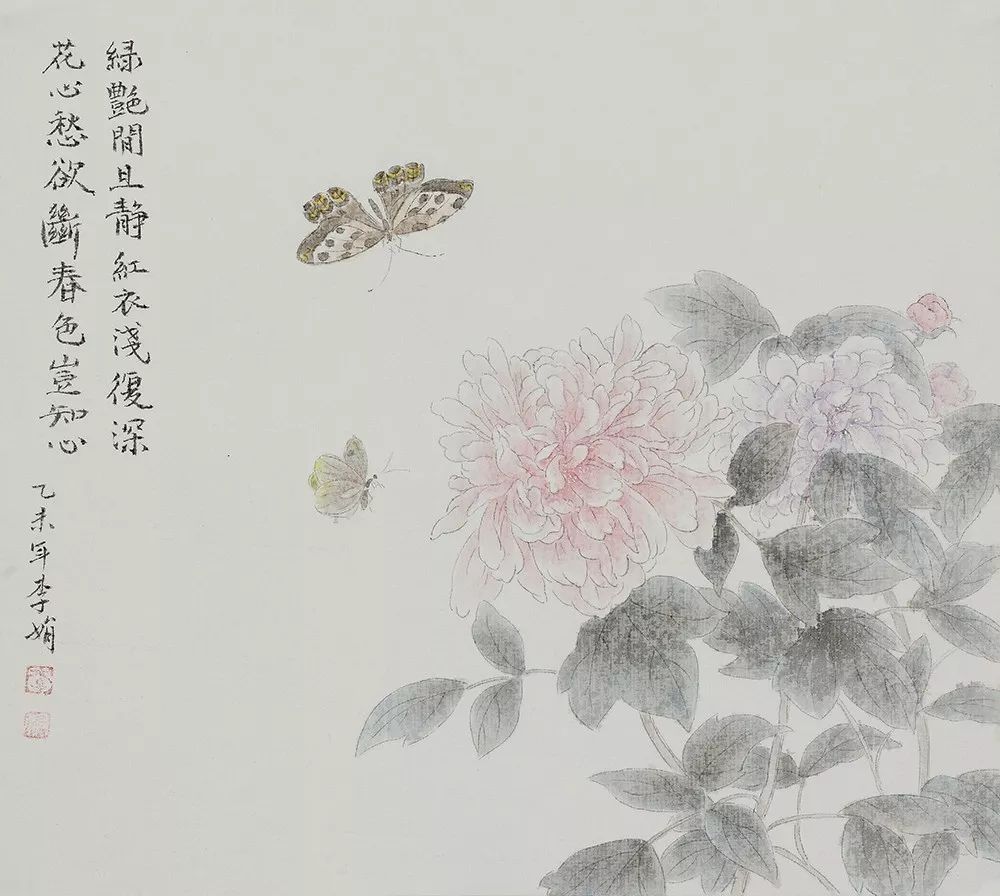 綠艷閒且靜紅衣淺復深
花心愁欲斷春色豈知心
乙未年李娟